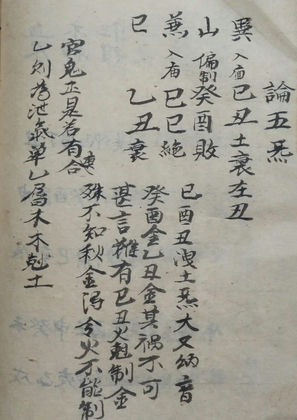 論五炁
巽 入庙 己丑土衰在丑
山 偏制 癸酉敗
兼 入庙 己巳絶
巳 乙丑衰
巳酉丑洩土炁大又納音
癸酉金乙丑金其禍不可
甚言雖有己丑火尅制金
殊不知秋金得令火不能制
官鬼正是若有合
乙則為泄氣單乙属木木剋土